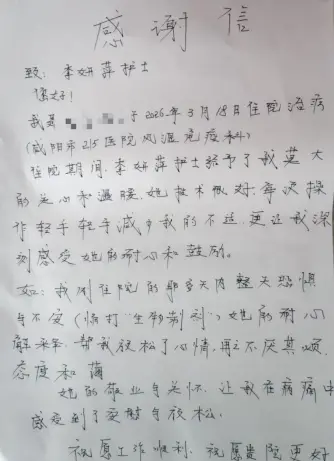 感谢信
致：李妍萍护士
您好！
我是 于2026年3月18日住院治病
（咸阳市215医院风湿免疫科）
住院期间，李妍萍护士给予了我莫大
的关心和温暖，她技术很好每次操
作轻手轻手减少我的不适，更让我深
刻感受她的耐心和鼓励。
如：我刚住院的那多天内整天恐惧
与不安（情打“生物制剂”）她的耐心
解释，帮我放松了心情，再之不厌其烦，
态度和蔼
她的敬业与关怀，让我在病痛中
感受到了安慰与放松。
祝愿工作顺利，祝愿贵院更好